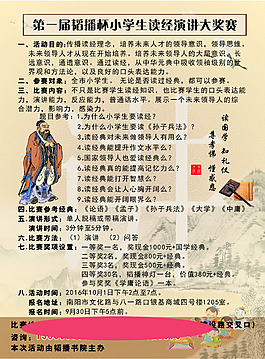 第一届韬播杯小学生读经演讲大奖赛
一、活动目的：传播读经理念，培养未来人才的领导意识，领导思维。
未来领导人才从现在开始培养。培养未来领导人的大局意识，长
远意识，通透意识。通过读经，从中华元典中吸收领袖级别的世
界观和方法论，以及良好的口头表达能力。
二、参赛对象：全市小学生，无论是否读过经典，都可以参赛。
三、比赛内容：不只是比赛学生读经知识，也比赛学生的口头表达能
力，演讲能力，反应能力，普通话水平，展示一个未来领导人的综
合潜力，影响力，感染力。
题目参考：1.为什么小学生要读经？
2.为什么小学生要读《孙子兵法》？
3.读经典对未来做领导人有用么？
4.读经典能提升作文水平么？
5.国家领导人也爱读经典么？
6.读经典真的能提高记忆力么？
7.读经典能打开智慧么？
8.读经典会让人心胸开阔么？
9.读经典能开阔眼界么？
读国学 知礼仪
尊孝佛 懂感恩
四、比赛参考经典：《论语》《孟子》《孙子兵法》《大学》《中庸》
五、演讲形式：单人脱稿或带稿演讲。
演讲时间：3分钟至5分钟。
六、比赛方法：（1）演讲 （2）问答
七、比赛奖项设置：一等奖一名，奖现金1000元+国学经典。
二等奖2名，奖现金800元+经典。
三等奖3名，奖现金500元+经典。
四等奖30名，韬播神灯一台，价值380元+经典。
参与奖奖《学庸论语》一本。
八、活动时间：2016年10月1日下午2点至7点。
报名地址：南阳市文化路与八一路口银基商城四号楼1205室。
报名时间：9月30日下午5点前。
比赛
设路交叉口）
咨询：
本次活动由韬播书院主办